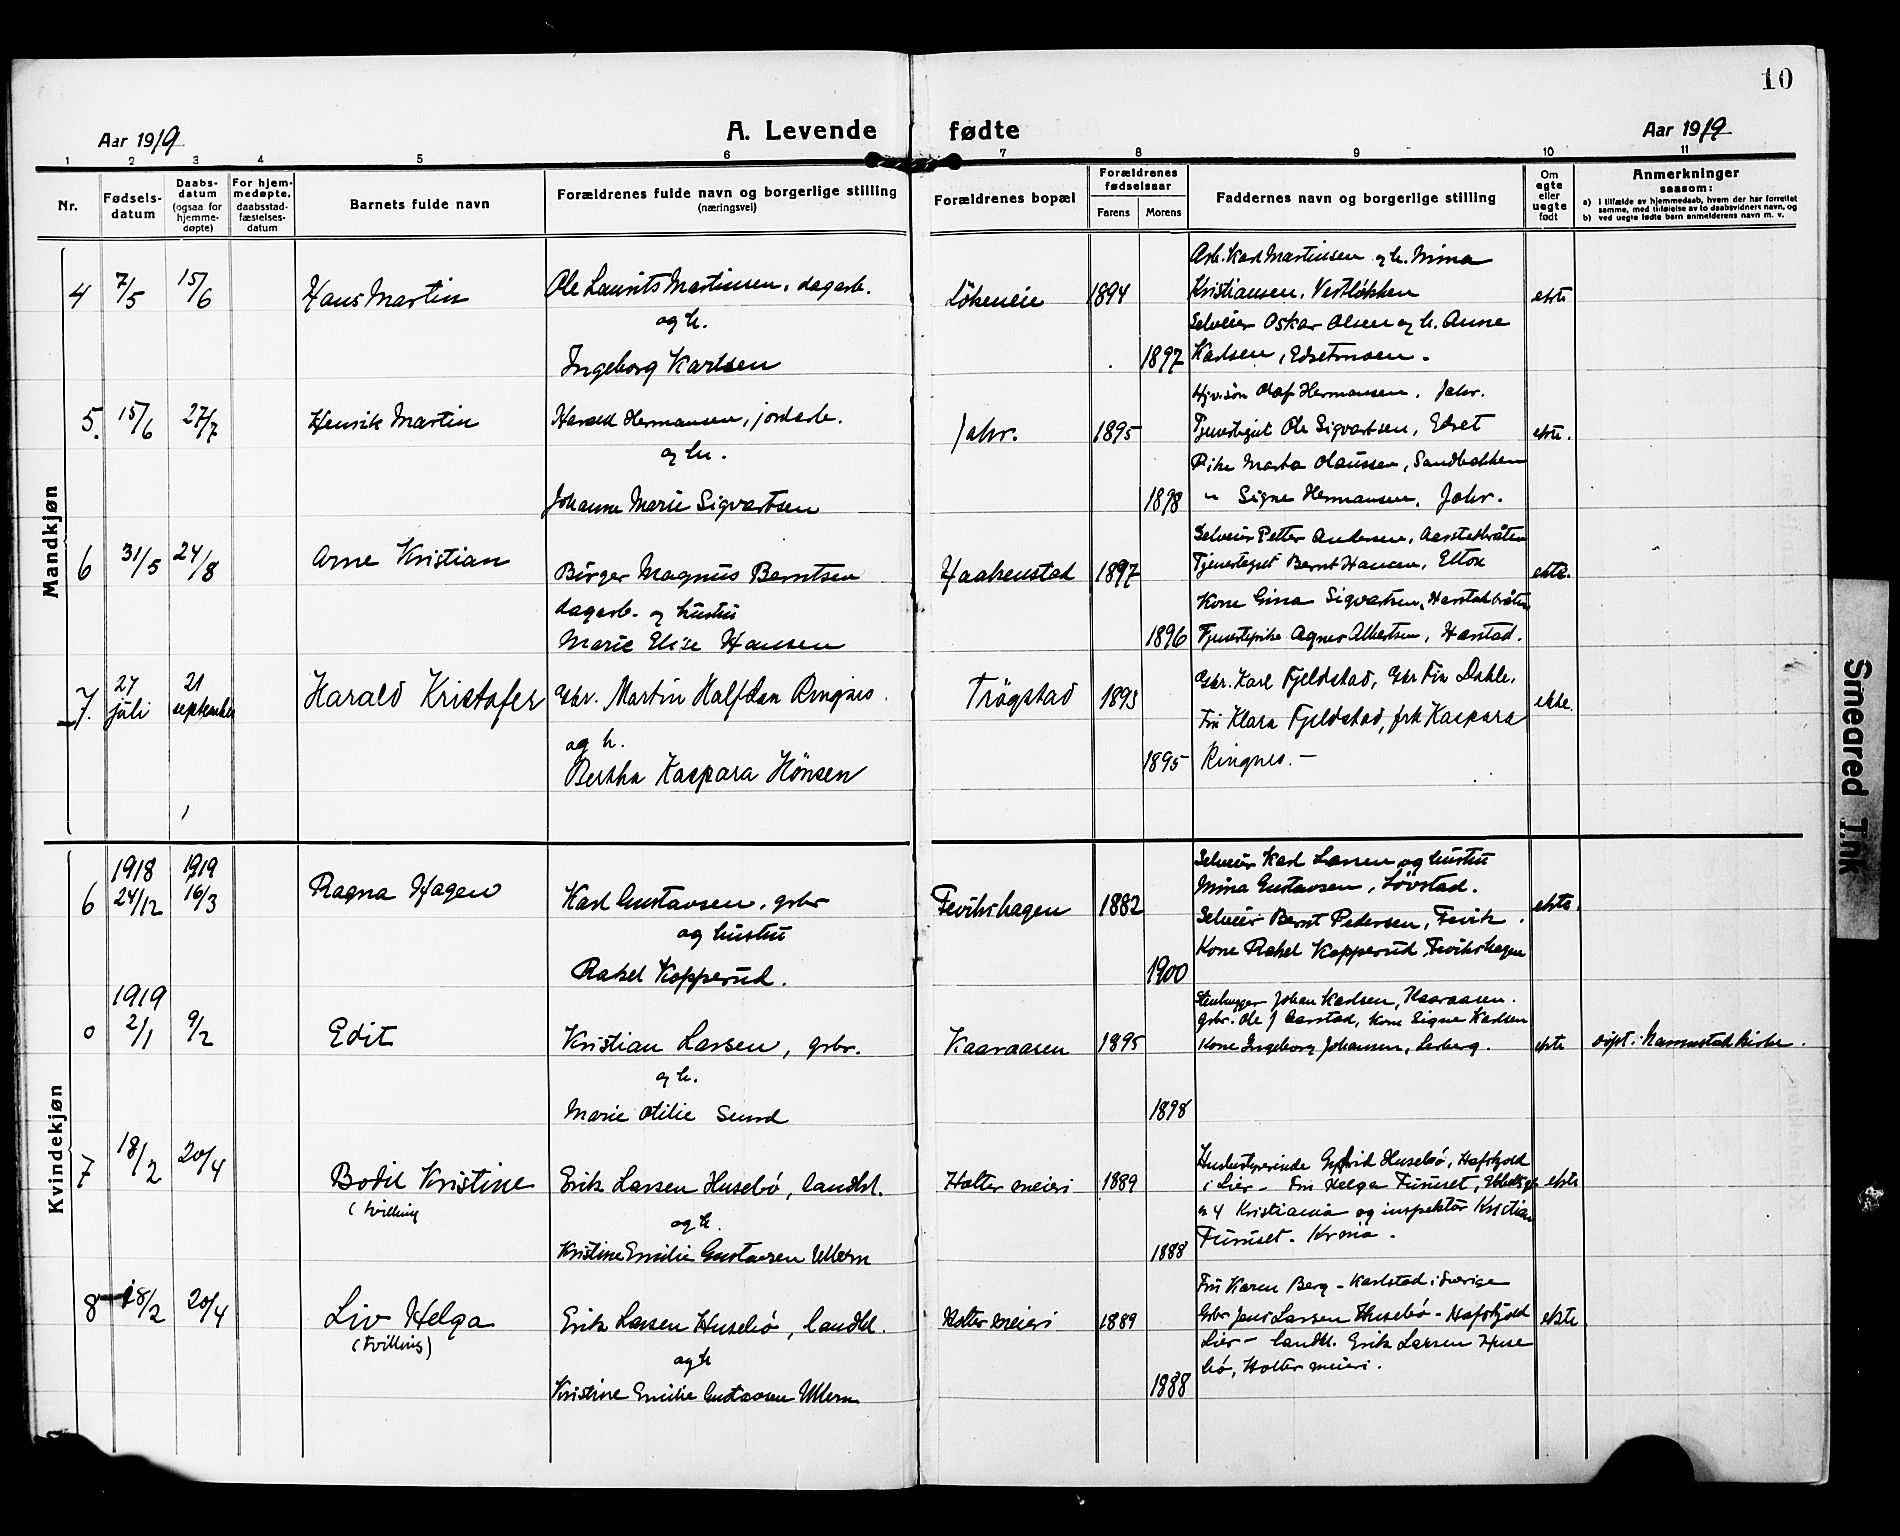 10
Aar 1919
A. Levende fødte
Aar 1919
1 2 3 4 5 6 7 8 9 10 11
Nr.
Fødsels-
datum
Daabs-
datum
(ogsaa for
hjemme-
døpte)
For hjem-
medøpte,
daabsstad-
fæstelses-
datum
Barnets fulde navn
Forældrenes fulde navn og borgerlige stilling
(næringsvei)
Forældrenes bopæl
Forældrenes
fødselsaar
Farens
Morens
Faddernes navn og borgerlige stilling
Om
ægte
eller
uegte
født
Anmerkninger
saasom:
a) i tilfælde av hjemmedaab, hvem der har forrettet
samme, med tilføielse av to daabsvidners navn, og
b) ved uegte fødte barn anmelderens navn m. v.
Mandkjøn
4 7/5 15/6 Hans Martin Ole Laurits Martinsen, dagarb. Lökeneie 1894 ekte
og h.
Ingeborg Karlsen 1897
Arb. Karl Martinsen og h. Mina
Kristiansen, Vestløkken
Selveier Oskar Olsen og h. Anne
Karlsen,
5. 15/6 27/7 Henrik Martin Harald Hermansen, jordarb. Jahr. 1895 ekte.
og hu.
Johanne Marie Sigvartsen 1898
Olaf Hermansen, Jahr.
Ole Sigvartsen, Edset
Pike Marta Olaussen, Sandbakken
" Signe Hermansen, Jahr.
6 31/5 24/8 Arne Kristian Birger Magnus Berntsen Haakenstad 1897 ekte.
dagarb. og hustru
Marie Elise Hansen 1896
Selveier Petter Andersen,
Bernt Hansen,
Kone Gina Sigvartsen,
Tjenestepike Agnes Albertsen, Harstad.
7. 27 juli 21 september Harald Kristofer Gbr. Martin Halfdan Ringnes Trögstad 1893 ekte.
og h.
Bertha Kaspara Hönsen 1895
Gbr. Karl Fjeldstad, Gbr Dahle,
Fru Klara Fjeldstad, frk Kaspara
Ringnes. –
Kvindekjøn
6 1918 24/12 1919 16/3 Ragna Hagen Karl Gustavsen, gbr Fevikshagen 1882 ekte.
og hustru
Rakel Kopperud. 1900
Selveier Karl Larsen og hustru
Mina Gustavsen, Lövstad.
Selveier Bernt Pedersen, Fevik.
Kone Rakel Kopperud, Fevikshagen
0 1919 2/1 9/2 Edit Kristian Larsen, gbr. Kaaraasen 1895 ekte
og h.
Marie Otilie Sund 1898
Stenhugger Johan Karlsen, Kaaraasen.
gbr. Ole J Aarstad, Kone Signe Karlsen
Kone Ingeborg Johansen,
döpt i Nannestad kirke.
7 18/2 20/4 Bodil Kristine Erik Larsen Husebö, landh. Holter meieri 1889 ekte
(tvilling
og h.
Kristine Emilie Gustavsen Ullern 1888
Husbestyrerinde Husebö, Hafskjold
i Lier – Fru Helga Furuset,
n 4 Kristiania og inspektör Kristian
Furuset – Kr.ania.
8 18/2 20/4 Liv Helga Erik Larsen Husebö, landh. Holter meieri 1889 ekte
(tvilling)
og h
Kristine Emilie Gustavsen Ullern 1888
Fru Karen Berg – Karlstad i Sverige
Gbr Jens Larsen Husebö – Hafskjold
Lier – landh. Erik Larsen Huse
bö, Holter meieri.
Smeared Ink